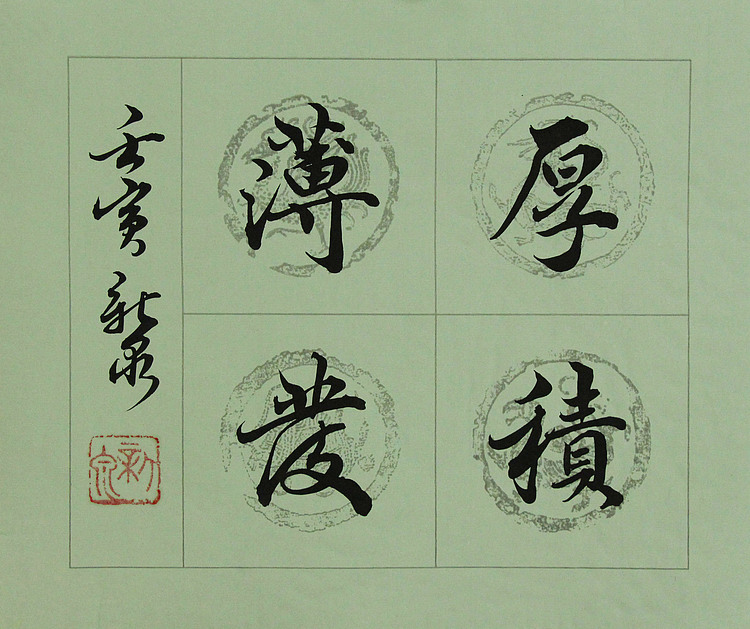 厚積
薄發
壬寅新泉
新泉